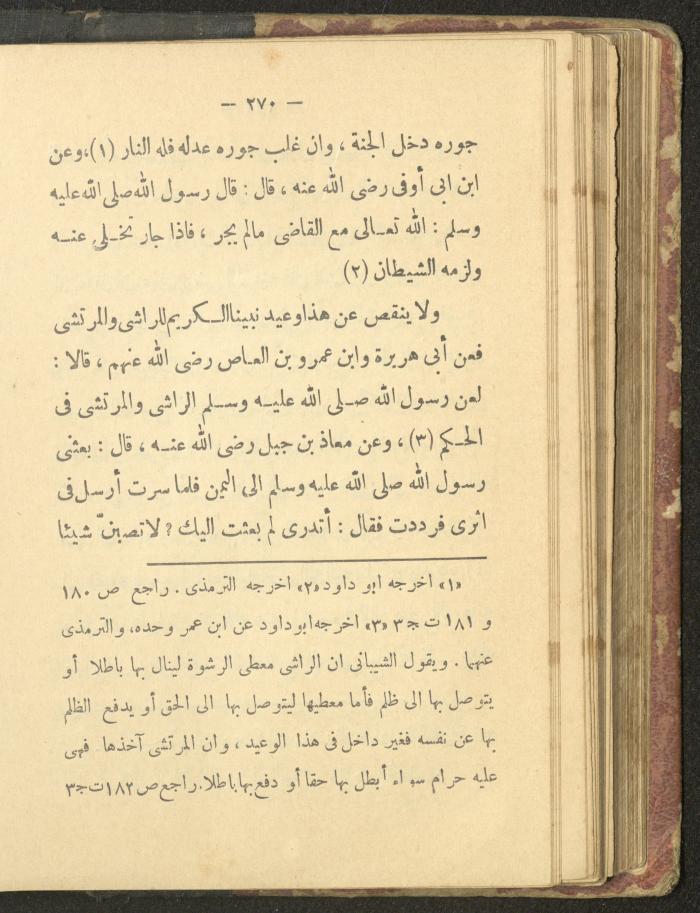 — ٢٧٠ —
جوره دخل الجنة ، وان غلب جوره عدله فله النار (١)،وعن
ابن ابى أوفى رضى الله عنه ، قال : قال رسول الله صلى الله عليه
وسلم : الله تعـالى مع القاضى مالم يجر ، فاذا جار تخـلى عنـه
ولزمه الشيطان (٢)
ولا ينقص عن هذا وعيد نبينا الـكريم للراشى والمرتشى
فعن أبى هريرة وابن عمرو بن العـاص رضى الله عنهم ، قالا :
لعن رسول الله صـلى الله عليـه وسـلم الراشى والمرتشى فى
الحـكم (٣) ، وعن معاذ بن جبل رضى الله عنـه ، قال : بعثنى
رسول الله صلى الله عليه وسلم الى اليمن فلما سرت أرسل فى
اثرى فرددت فقال : أتدرى لم بعثت اليك ? لاتصبنّ شيئا
«١» اخرجه ابو داود «٢» اخرجه الترمذى . راجع ص ١٨٠
و ١٨١ ت ج ٣ «٣» اخرجه ابو داود عن ابن عمر وحده، والترمذى
عنهما . ويقول الشيبانى ان الراشى معطى الرشوة لينال بها باطلا أو
يتوصل بها الى ظلم فأما معطيها ليتوصل بها الى الحق أو يدفع الظلم
بها عن نفسه فغير داخل فى هذا الوعيد ، وان المرتشى آخذها فهى
عليه حرام سواء أبطل بها حقا أو دفع بها باطلا. راجع ص ١٨٢ ت ج ٣